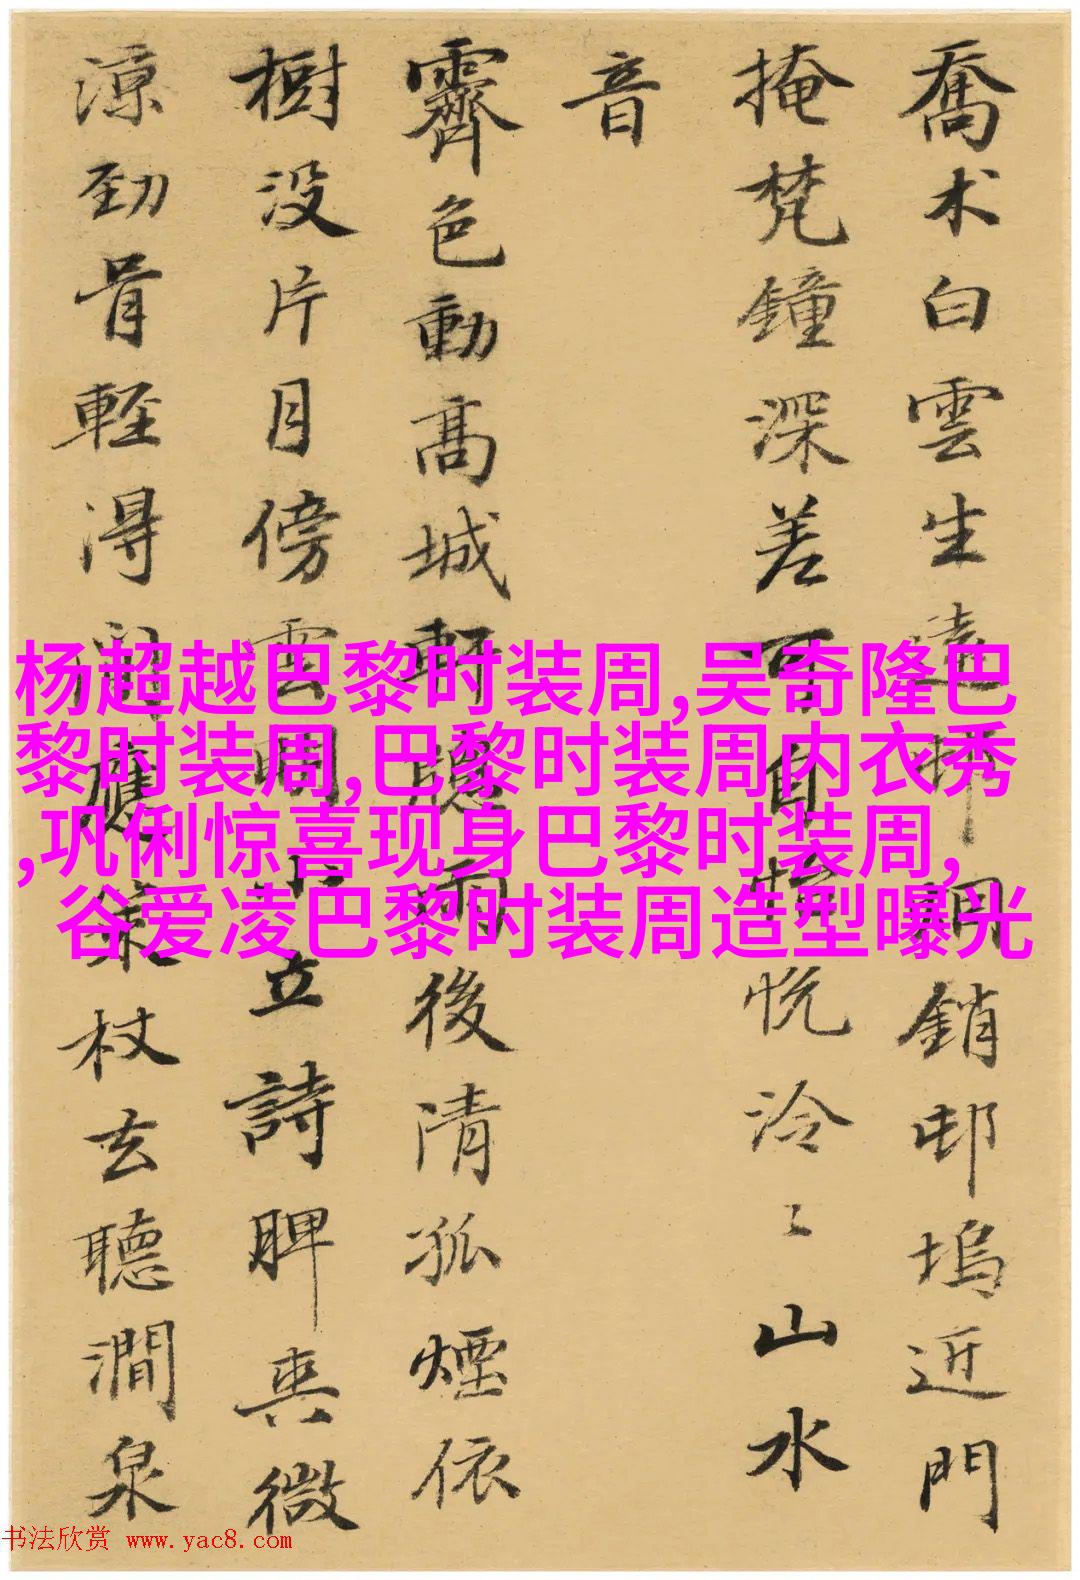 喬木白雲生遠銷邨塢近門
掩梵鐘深差可自怡悅泠〻山水
音
霽色動高城軒窓雨後清孤煙依
樹没片月傍雲明立詩脾爽微
涼勁骨輕得閒應策杖去聽澗泉
杨超越巴黎时装周,吴奇隆巴
黎时装周,巴黎时装周内衣秀
,巩俐惊喜现身巴黎时装周,
谷爱凌巴黎时装周造型曝光
书法欣赏 www.yac8.com